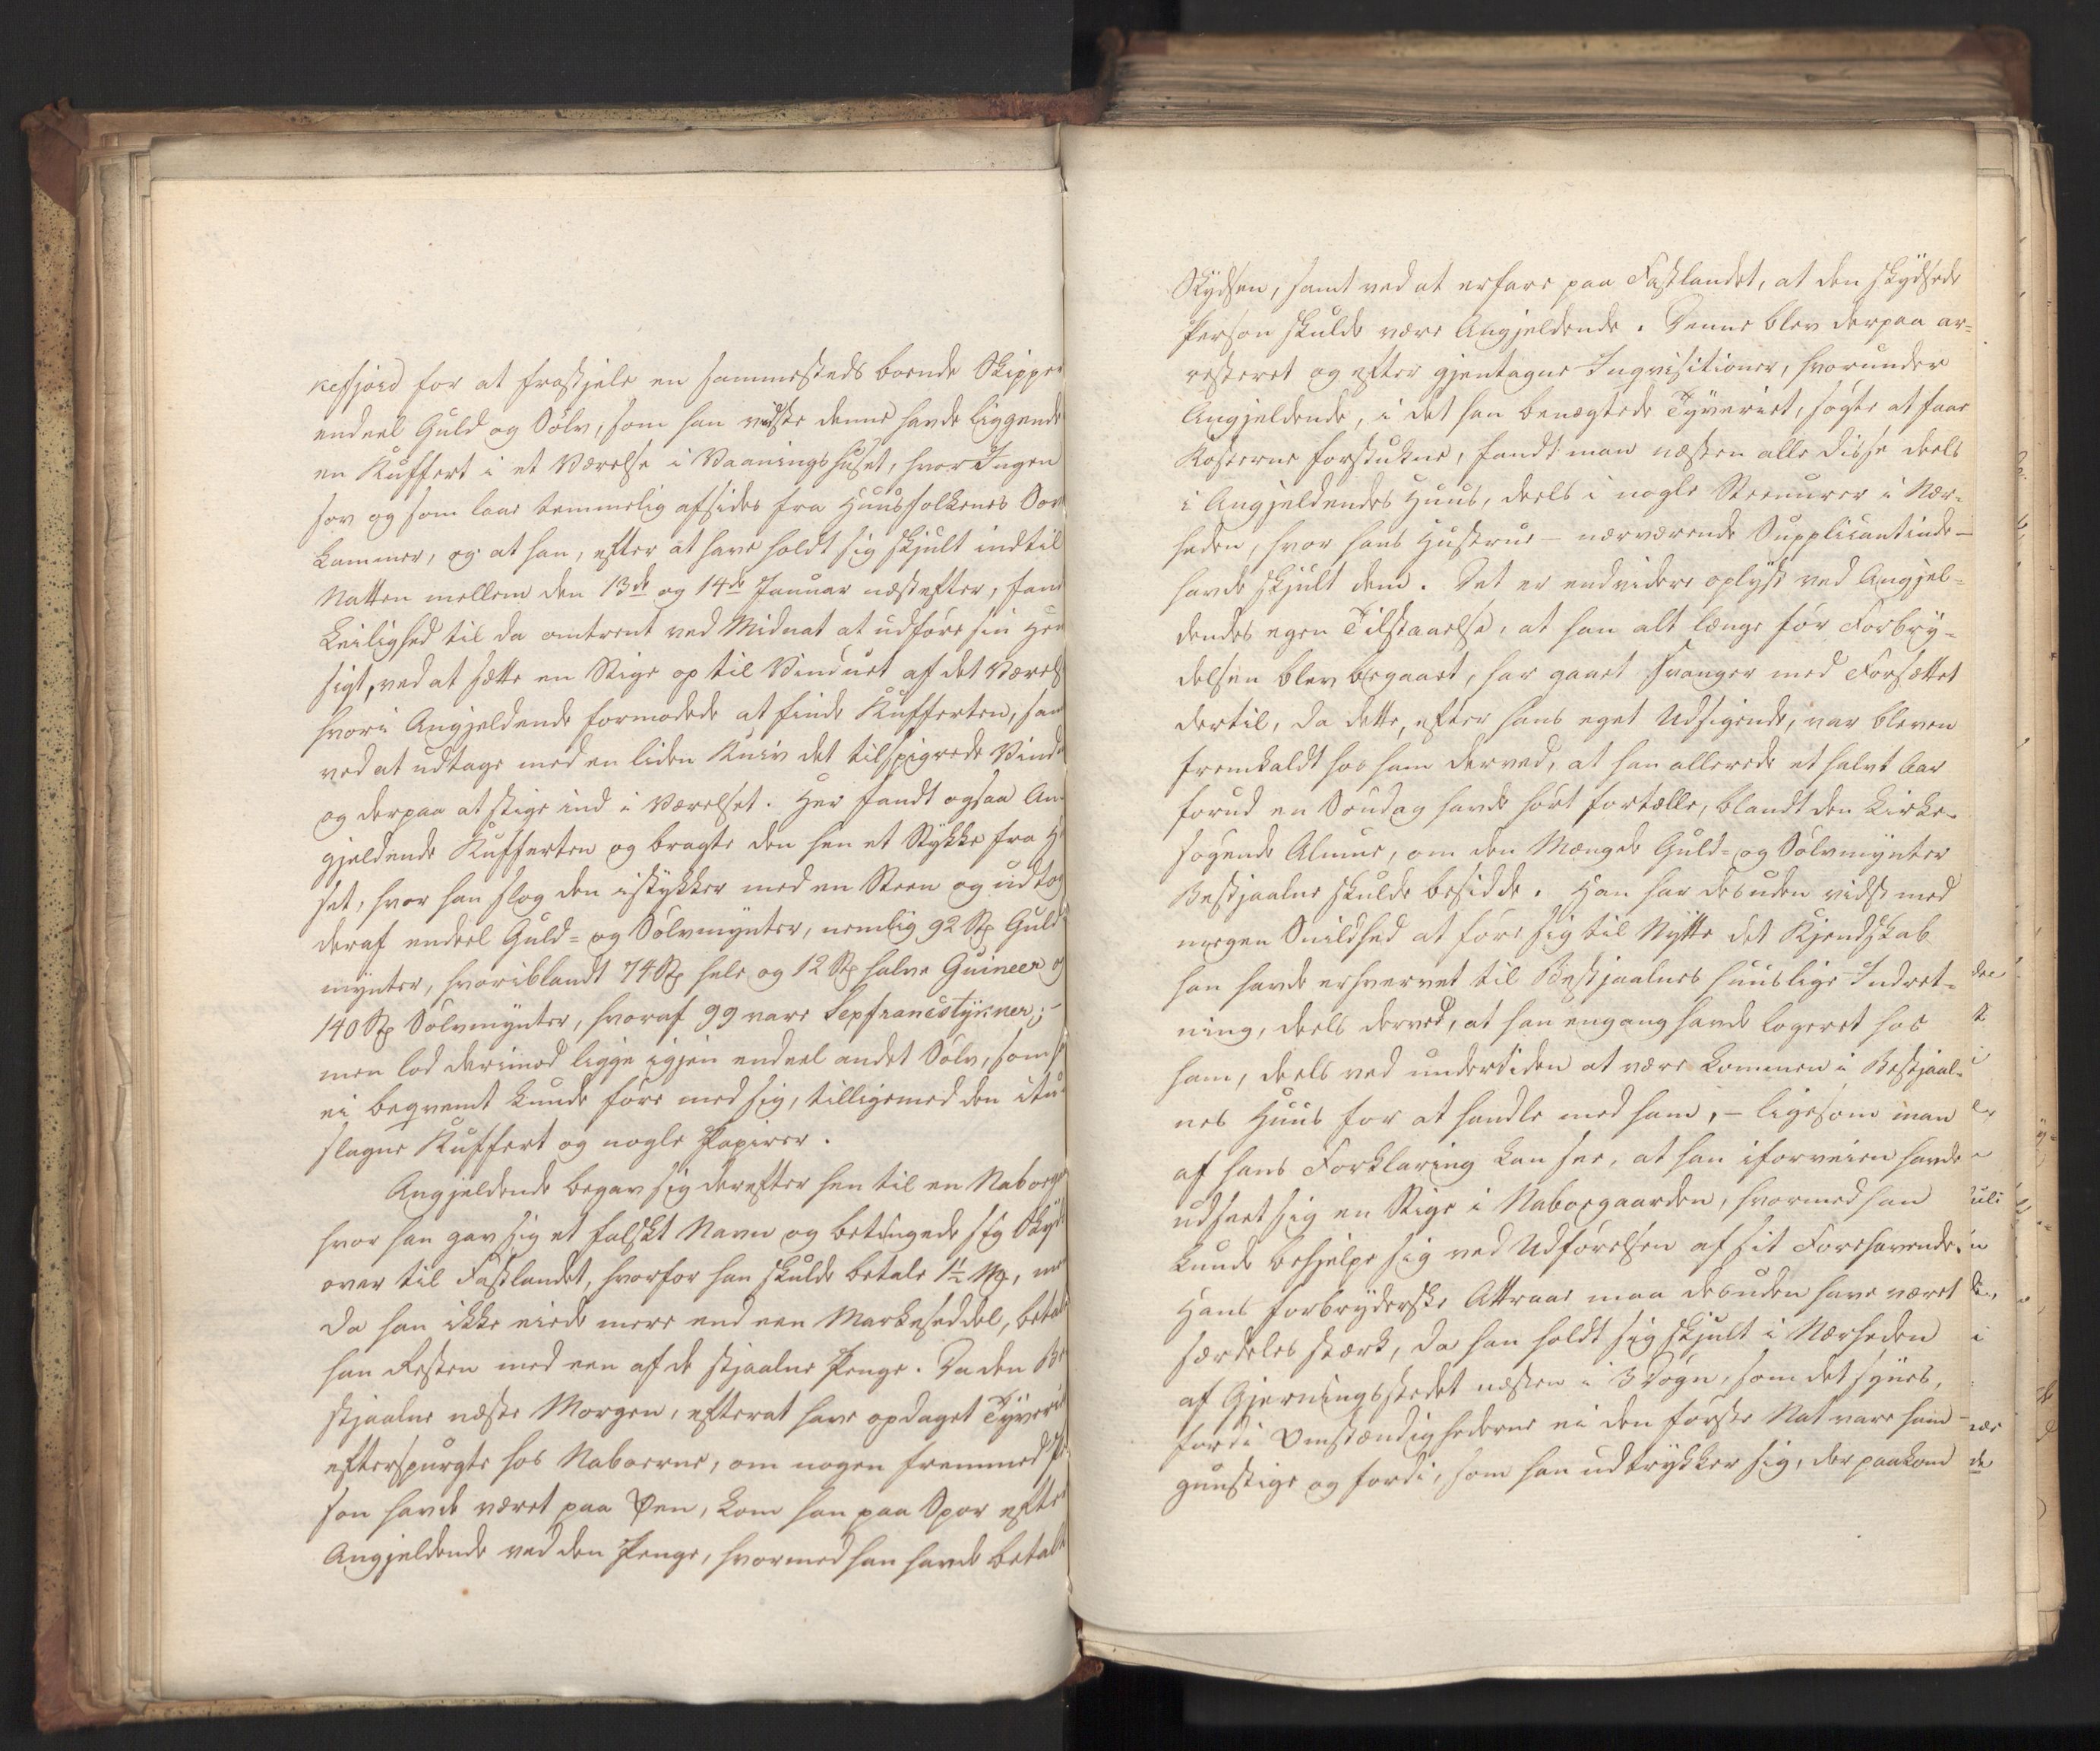 kefjord for at frastjele en sammesteds boende Skipper
endeel Guld og Sölv, som han vidste denne havde liggende
en Kuffert i et Værelse i Vaaningshuset, hvor Ingen
sov og som laae temmelig afsides fra Huusfolkenes Sov
kammer, og at han, efter at have holdt sig skjult indtil
Natten mellem den 13de og 14de Januar næstefter, fandt
Leilighed til da omtrent ved Midnat at udföre sin Hen
sigt, ved at sætte en Stige op til Vinduet af det Værelse
hvori Angjeldende formodede at finde Kufferten, samt
ved at udtage med en liden Kniv det tilspigrede Vindu
og derpaa at stige ind i Værelset. Her fandt ogsaa An-
gjeldende Kufferten og bragte den hen et Stykke fra Hu
set, hvor han slog den istykker med en Steen og udtog
deraf endeel Guld- og Sölvmynter, nemlig 92 Stp Guld
mynter, hvoriblandt 74 Stp hele og 12 Stp halve Guineer og
140 Stp Sölvmynter, hvoraf 99 vare Sexfrancstykker; -
men lod derimod ligge igjen endeel andet Sölv, som han
ei beqvemt kunde före med sig, tilligemed den itu-
slagne Kuffert og nogle Papirer.
Angjeldende begav sig derefter hen til en Naboegaard
hvor han gav sig et falskt Navn og betingede sig Skyds
over til Fastlandet, hvorfor han skulde betale 1½ Mp, men
da han ikke eiede mere end een Markseddel, betalte
han Resten med een af de stjaalne Penge. Da den Be
stjaalne næste Morgen, efterat have opdaget Tyveriet
efterspurgte hos Naboerne, om nogen fremmed Per
son havde været paa Øen, kom han paa Spor efter
Angjeldende ved den Penge, hvormed han havde betalt
Skydsen, samt ved at erfare paa Fastlandet, at den skydsede
Person skulde være Angjeldende. Denne blev derpaa ar-
resteret og efter gjentagne Inqvisitioner, hvorunder
Angjeldende, i det han benægtede Tyveriet, søgte at faae
Kosterne forstukne, fandt man næsten alle disse deels
i Angjeldendes Huus, deels i nogle Steenurer i Nær-
heden, hvor hans Hustrue - nærværende Supplicantinde -
havde skjult dem. Det er endvidere oplyst ved Angjel-
dendes egen Tilstaaelse, at han alt længe för Forbry-
delsen blev begaaet, har gaaet svanger med Forsættet
dertil, da dette, efter hans eget Udsigende, var bleven
fremkaldt hos ham derved, at han allerede et halvt Aar
forud en Söndag havde hört fortælle, blandt den kirke-
sögende Almue, om den Mængde Guld- og Sölvmynter
Bestjaalne skulde besidde. Han har desuden vidst med
megen Snildhed at före sig til Nytte det Kjendskab
han havde erhvervet til Bestjaalnes huuslige Indret-
ning, deels derved, at han engang havde logeret hos
ham, deels ved undertiden at være kommen i Bestjaal-
nes Huus for at handle med ham, - ligesom man
af hans Forklaring kan see, at han iforveien havde
udseet sig en Stige i Naboegaarden, hvormed han
kunde behjelpe sig ved Udförelsen af sit Forehavende.
Hans forbryderske Attraae maa desuden have været
særdeles stærk, da han holdt sig skjult i Nærheden
af Gjerningsstedet næsten i 3 Dögn, som det synes,
fordi Omstændighederne ei den förste Nat vare ham
gunstige og fordi, som han udtrykker sig, der paakom